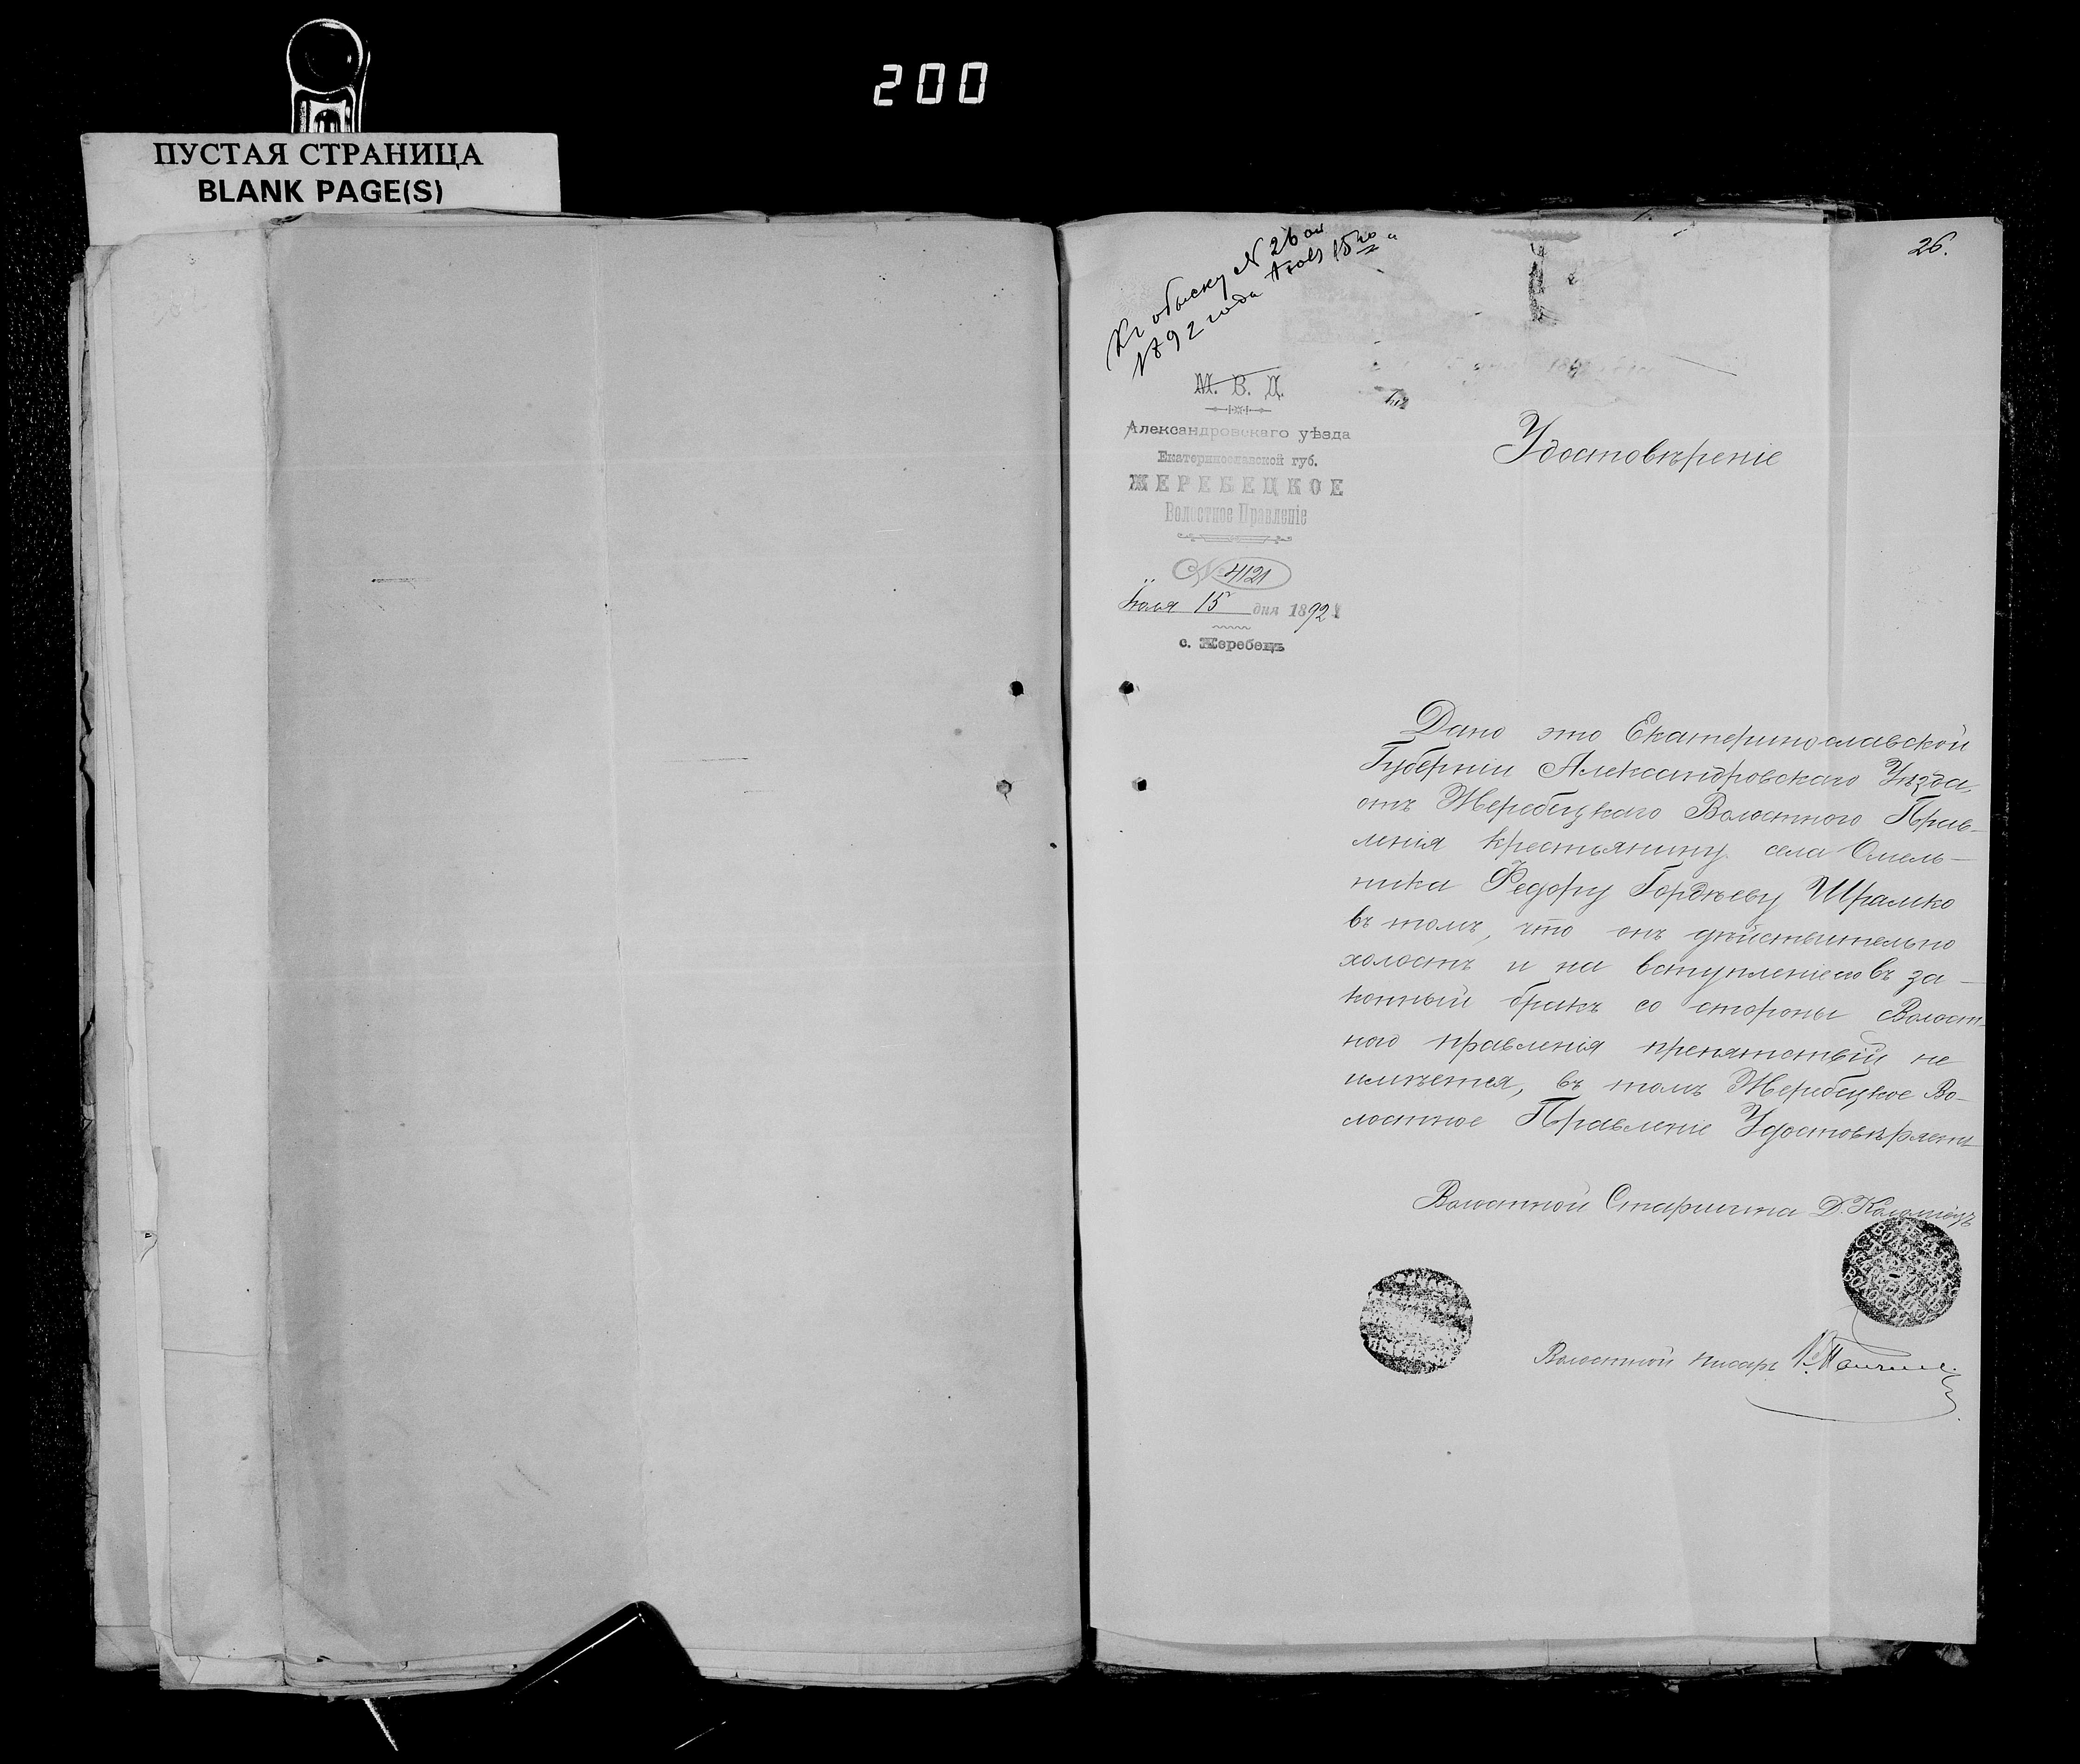 200
ПУСТАЯ СТРАНИЦА
BLANK PAGE(S)
26.
Къ обыску N 26
1892 года
М. В. Д.
Александровскаго уѣзда
Екатеринославской губ.
ЖЕРЕБЕЦКОЕ
Волостное Правленіе
№ 4121
15 дня 1892
с. Жеребецъ
Удостовѣреніе
Дано это Екатеринославской
Губерніи Александровскаго Уѣзда,
отъ Жеребецкаго Волостного Прав-
ленія крестьянину села Омель-
ника Федору Гордѣеву Шрамко
въ томъ, что онъ дѣйствительно
холостъ и на вступленіе въ за-
конный бракъ со стороны Волост-
ного правленія препятствій не
имѣется, въ томъ Жеребецкое Во-
лостное Правленіе Удостовѣряетъ
Волостной Старшина Д. Коломіецъ
Волостной писарь